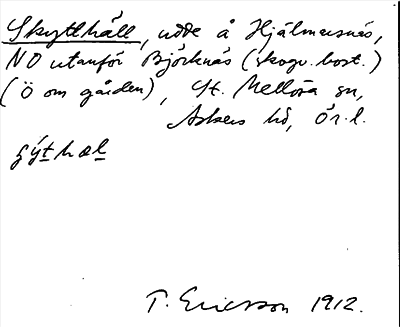 Skytthäll, udde å Hjälmarsnäs,
NO utanför Björknäs (skogv.bost.)
(Ö om gården), St. Mellösa sn,
Askers hd, Ör.l.
ʃýthæl
T. Ericsson 1912.